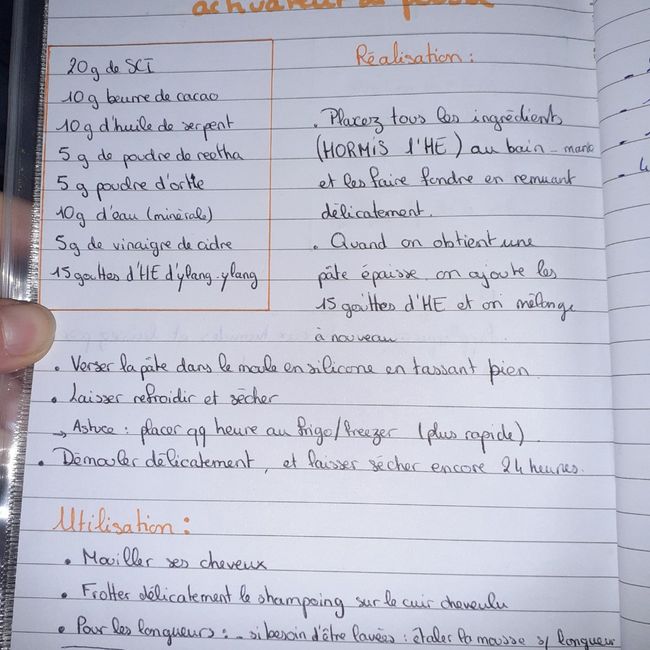 activateur de pousse
20g de SCI
10g beurre de cacao
10g d'huile de serpent
5 g de poudre de reetha
5 g poudre d'ortie
10g d'eau (minérale)
5g de vinaigre de cidre
15 gouttes d'HE d'ylang-ylang
Réalisation :
. Placez tous les ingrédients
(HORMIS l'HE) au bain-marie
et les faire fondre en remuant
délicatement.
. Quand on obtient une
pâte épaisse, on ajoute les
15 gouttes d'HE et on mélange
à nouveau.
• Verser la pâte dans le moule en silicone en tassant bien.
• Laisser refroidir et sécher
→ Astuce : placer qq heure au frigo/freezer (plus rapide).
• Démouler délicatement, et laisser sécher encore 24 heures.
Utilisation :
• Mouiller ses cheveux
• Frotter délicatement le shampoing sur le cuir chevelu
• Pour les longueurs : - si besoin d'être lavées : étaler la mousse s/ longueur